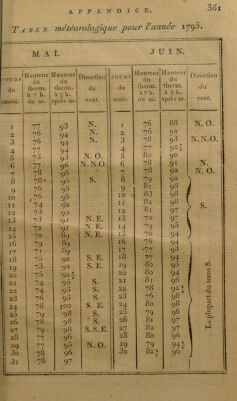 APPENDICE. 361
TABLE météorologique pour l'année 1795.
MAI. JUIN.
JOURS Hauteur Hauteur Direction JOURS Hauteur Hauteur Direction
du du therm. du therm. du du du therm. du therm. du
mois. à 7 h. du m. à 3 h. après m. vent. mois. à 7 h. du m. à 3 h. vent.
1 77 93 N. 1 76 88 N. O.
2 76 94 N. 2 76 92
3 76 94 N. 3 78 93 N.N.O.
4 77 94 4 77
5 75 93 N. O. 5 80 90
6 77 96 N.N.O. 6 78 91 N.
7 78 96 7 78 92 N. O.
8 78 96 S. 8 79 92
9 76 95 9 81 98
10 76 95 10 83 98
11 74 92 11 82 98 S.
12 73 92 12 81 97
13 73 91 N. E. 13 79 98
14 72 91 N. E. 14 70 94
15 70 89 N. E. 15 76 94
16 79 16 76 94
17 71 17 77 93
18 75 92 S. E. 18 77 94
19 73 92 S. E. 19 80 94
20 75 20 80 94
21 74 95 S. 21 80 96
22 74 95 S. 22 78
23 76 95 S. 23 76 98
24 78 100 S. E. 24 80 98
25 78 96 S. 25 79 96
26 78 98 S. 26 81 97
27 79 98 S.S.E. 27 82 97
28 77 96 28 80 96
29 77 95 N. O. 29 79
30 78 96 30 96
31 78 97
La plupart du tems S.